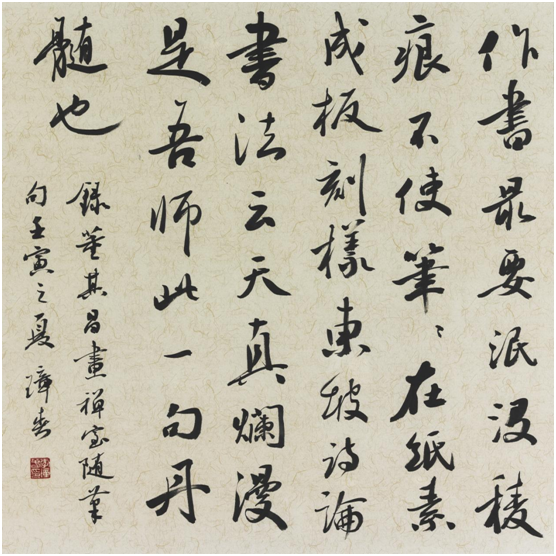 作書最要泯没稜
痕不使筆〻在紙素
成板刻樣東坡詩論
書法云天真爛漫
是吾師此一句丹
髓也
録董其昌畫禪室随筆
句壬寅之夏璋